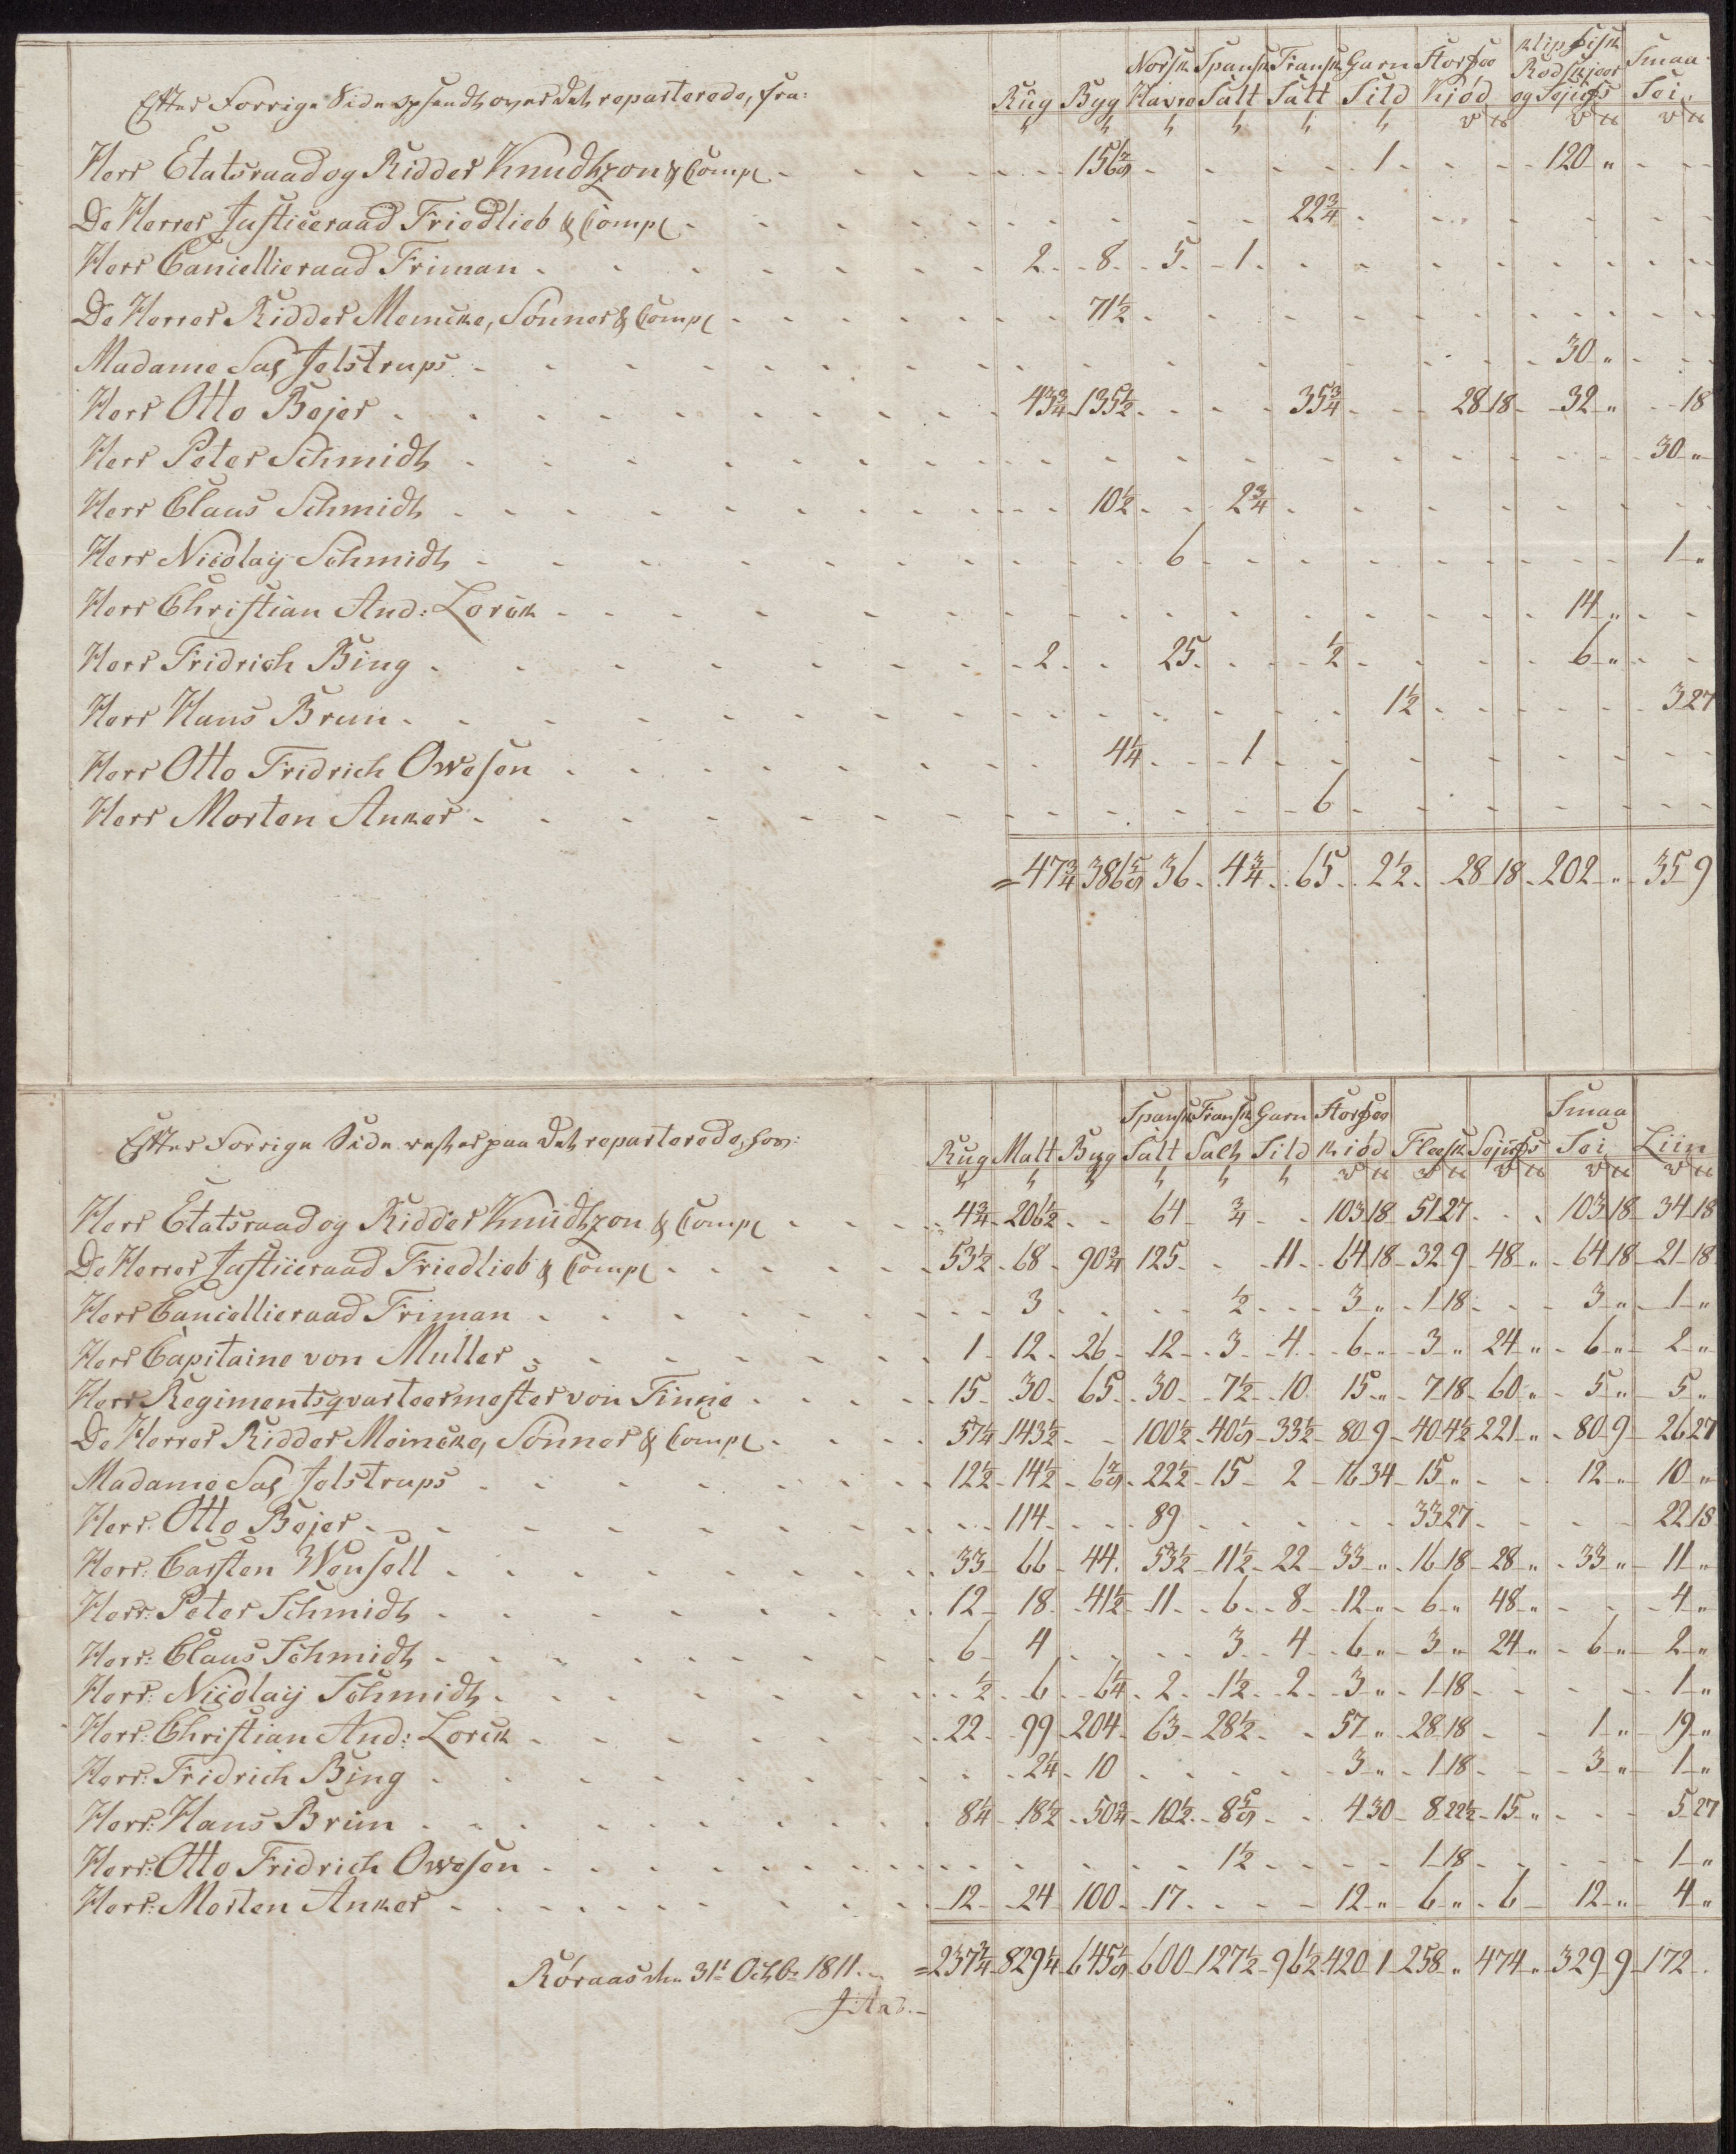 Efter Forrige Side opsendt over det reparterede, fra:
Rug Byg Norsk Havre Spansk Salt Fransk Salt Garn Sild Kjód Klipfisk Rødskjær og Smaa Sei
Herr Etatsraad og Ridder Knudtzon & Comp 156 1 120 "
De Herrer Justiceraad Friedlieb & Comp 22¾
Herr Cancellieraad Friman 2 8 5 1
De Herrer Ridder Meincke, Sönner & Comp 71½
Madame Sal Jelstrups 30 "
Herr Otto Bejer 43¾ 135½ 35¾ 28 18 32 " 18
Herr Peter Schmidt 30 "
Herr Claus Schmidt 10½ 2¾
Herr Nicolay Schmidt 6 1 "
Herr Christian And: Lorck 14 "
Herr Fridrich Bing 2 25 ½ 6 "
Herr Hans Brun 1½ 3 27
Herr Otto Fridrich Owesen 4¼ 1
Herr Morten Anker 6
= 47¾ 386 36 4¾ 65 2½ 28 18 202 " 35 9
Efter Forrige Side rester paa det reparterede, hos:
Rug Malt Byg Spansk Salt Fransk Salt Garn Sild kiód Fleesk Smaa Sei Liin
Herr Etatsraad og Ridder Knudtzon & Comp 4¾ 206½ 64 ¾ 103 18 51 27 103 18 34 18
De Herrer Justiceraad Friedlieb & Comp 53½ 68 90¾ 125 11 64 18 32 9 48 " 64 18 21 18
Herr Cancellieraad Friman 3 ½ 3 " 1 18 3 " 1 "
Herr Capitaine von Muller 1 12 26 12 3 4 6 " 3 " 24 " 6 " 2 "
Herr Regimentsqvarteermester von Finne 15 30 65 30 7½ 10 15 " 7 18 60 " 5 " 5 "
De Herrer Ridder Meincke, Sönner & Comp 57¼ 143½ 100½ 40 33½ 80 9 40 4½ 221 " 80 9 26 27
Madame Sal Jelstrups 12½ 14½ 6 22½ 15 2 16 34 15 " 12 " 10 "
Herr: Otto Bejer 114 89 33 27 22 18
Herr: Carsten Wensell 33 66 44 53½ 11½ 22 33 " 16 18 28 " 33 " 11 "
Herr: Peter Schmidt 12 18 41½ 11 6 8 12 " 6 " 48 " 4 "
Herr: Claus Schmidt 6 4 3 4 6 " 3 " 24 " 6 " 2 "
Herr: Nicolaij Schmidt ½ 6 6¼ 2 1½ 2 3 " 1 18 1 "
Herr: Christian And: Lorck 22 99 204 63 28½ 57 " 28 18 1 " 19 "
Herr: Fridrich Bing 2¼ 10 3 " 1 18 3 " 1 "
Herr: Hans Brun 8¼ 18½ 50¾ 10½ 8 4 30 8 22½ 15 " 5 27
Herr: Otto Fridrich Owesen 1½ 1 18 1 "
Herr: Morten Anker 12 24 100 17 12 " 6 " 6 12 " 4 "
= 237¾ 829¼ 645 600 127½ 96½ 420 1 258 " 474 " 329 9 172
Röraas den 31t Octbr 1811.